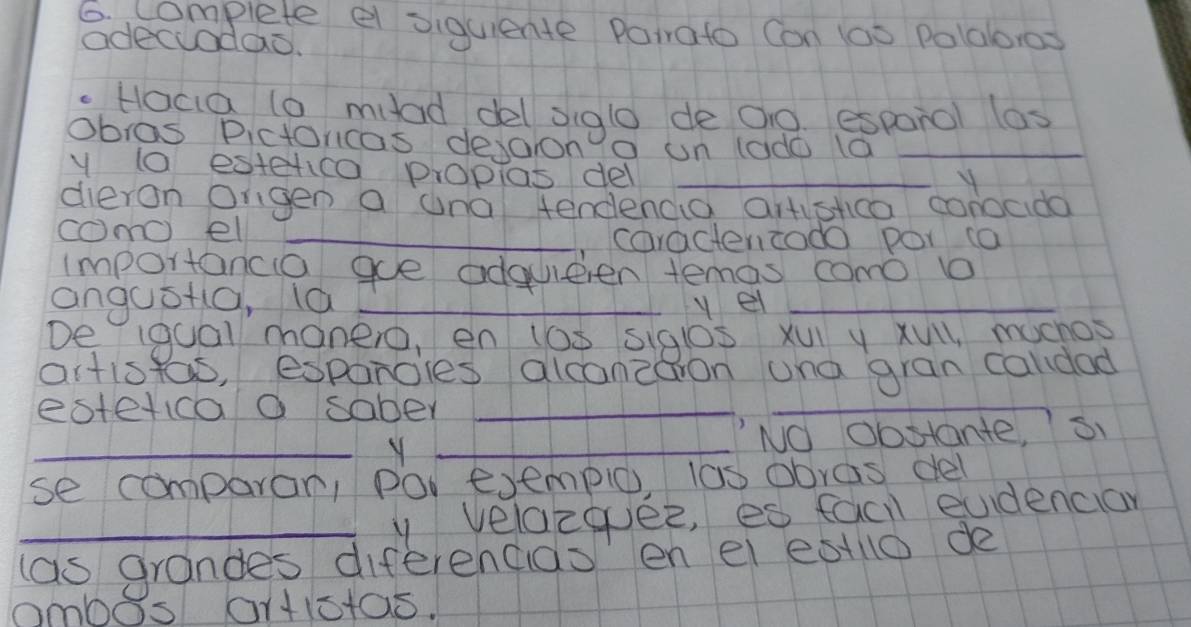 6. Complete el siguiente Parrafo Con las Palabras
adecuadas.
• Hacia la mitad del siglo de oro español las
Obras Pictoricas dejaron a un lado la ________
y la estetica propias del ________ y
dieron Origen a una tendencia artistica conocida
como el ________, caracterizado por la
importancia que adquieren temas como la
angustia, la ________ y el ________
De igual manera, en los siglos XVI y XVII, muchos
artistas, españoles alcanzaron una gran calidad
estetica a saber ________, ________,
________ y ________ No Obstante, si
se comparan, Por ejemplo, las obras del
________ y velazquez, es facil evidenciar
las grandes diferencias en el estilo de
ambos artistas.